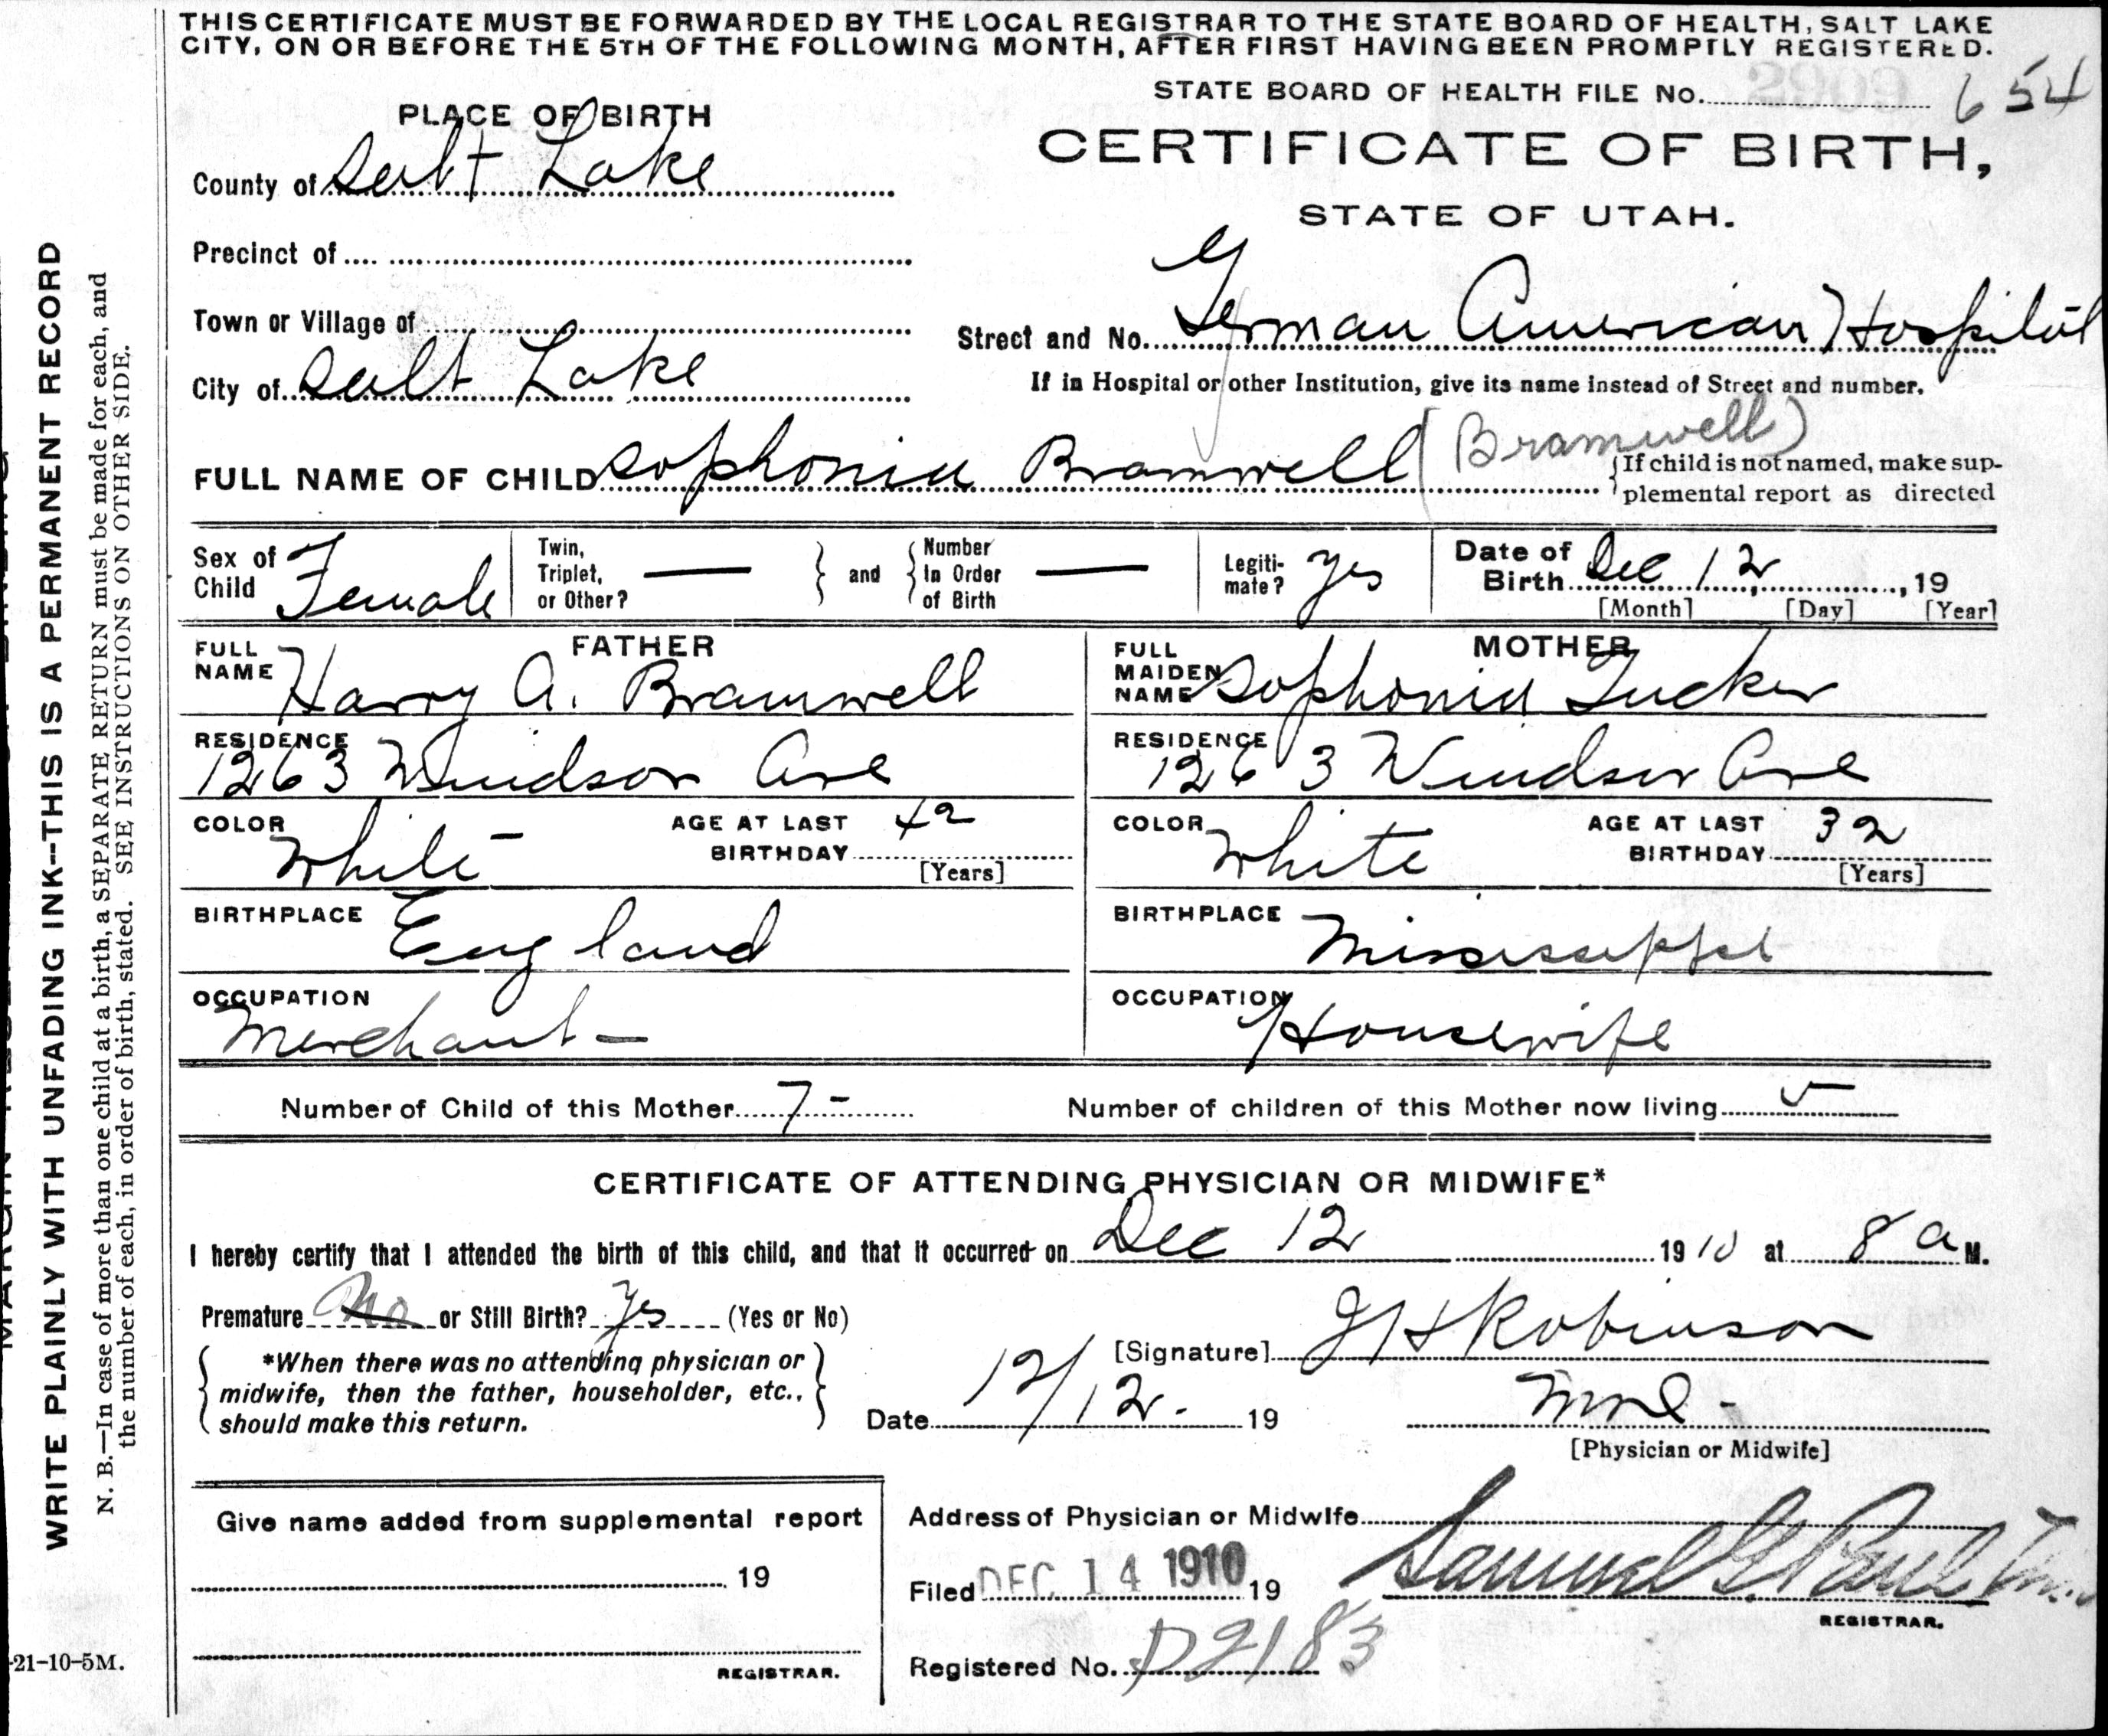 THIS CERTIFICATE MUST BE FORWARDED BY THE LOCAL REGISTRAR TO THE STATE BOARD OF HEALTH, SALT LAKE
CITY, ON OR BEFORE THE 5TH OF THE FOLLOWING MONTH, AFTER FIRST HAVING BEEN PROMPTLY REGISTERED.
STATE BOARD OF HEALTH FILE No. 2909 654
PLACE OF BIRTH
CERTIFICATE OF BIRTH,
County of Salt Lake
STATE OF UTAH.
Precinct of
Town or Village of
Street and No. German American Hospital
City of Salt Lake
If in Hospital or other Institution, give its name instead of Street and number.
(Bramwell)
FULL NAME OF CHILD Sophonia Bramwell
{If child is not named, make sup-
plemental report as directed
Sex of Child Female
Twin, Triplet, or Other? — } and { Number In Order of Birth —
Legiti-mate? Yes
Date of Birth Dec 12, 19
[Month] [Day] [Year]
FATHER
FULL NAME Harry A. Bramwell
RESIDENCE
1263 Windsor Ave
COLOR White
AGE AT LAST BIRTHDAY 42
[Years]
BIRTHPLACE England
OCCUPATION
Merchant –
MOTHER
FULL MAIDEN NAME Sophonia Tucker
RESIDENCE
1263 Windsor Ave
COLOR White
AGE AT LAST BIRTHDAY 32
[Years]
BIRTHPLACE Mississippi
OCCUPATION Housewife
Number of Child of this Mother 7 – Number of children of this Mother now living 5
CERTIFICATE OF ATTENDING PHYSICIAN OR MIDWIFE*
I hereby certify that I attended the birth of this child, and that it occurred on Dec 12 1910 at 8 a M.
Premature No or Still Birth? Yes (Yes or No)
[Signature] J H Robinson
*When there was no attending physician or
midwife, then the father, householder, etc.,
should make this return.
Date 12/12. 19
MD –
[Physician or Midwife]
Give name added from supplemental report
19
REGISTRAR.
Address of Physician or Midwife
Filed DEC 14 1910 19 Samuel G Paul
REGISTRAR.
Registered No. D2183
-21-10-5M.
WRITE PLAINLY WITH UNFADING INK--THIS IS A PERMANENT RECORD
N. B.—In case of more than one child at a birth, a SEPARATE RETURN must be made for each, and
the number of each, in order of birth, stated. SEE INSTRUCTIONS ON OTHER SIDE.